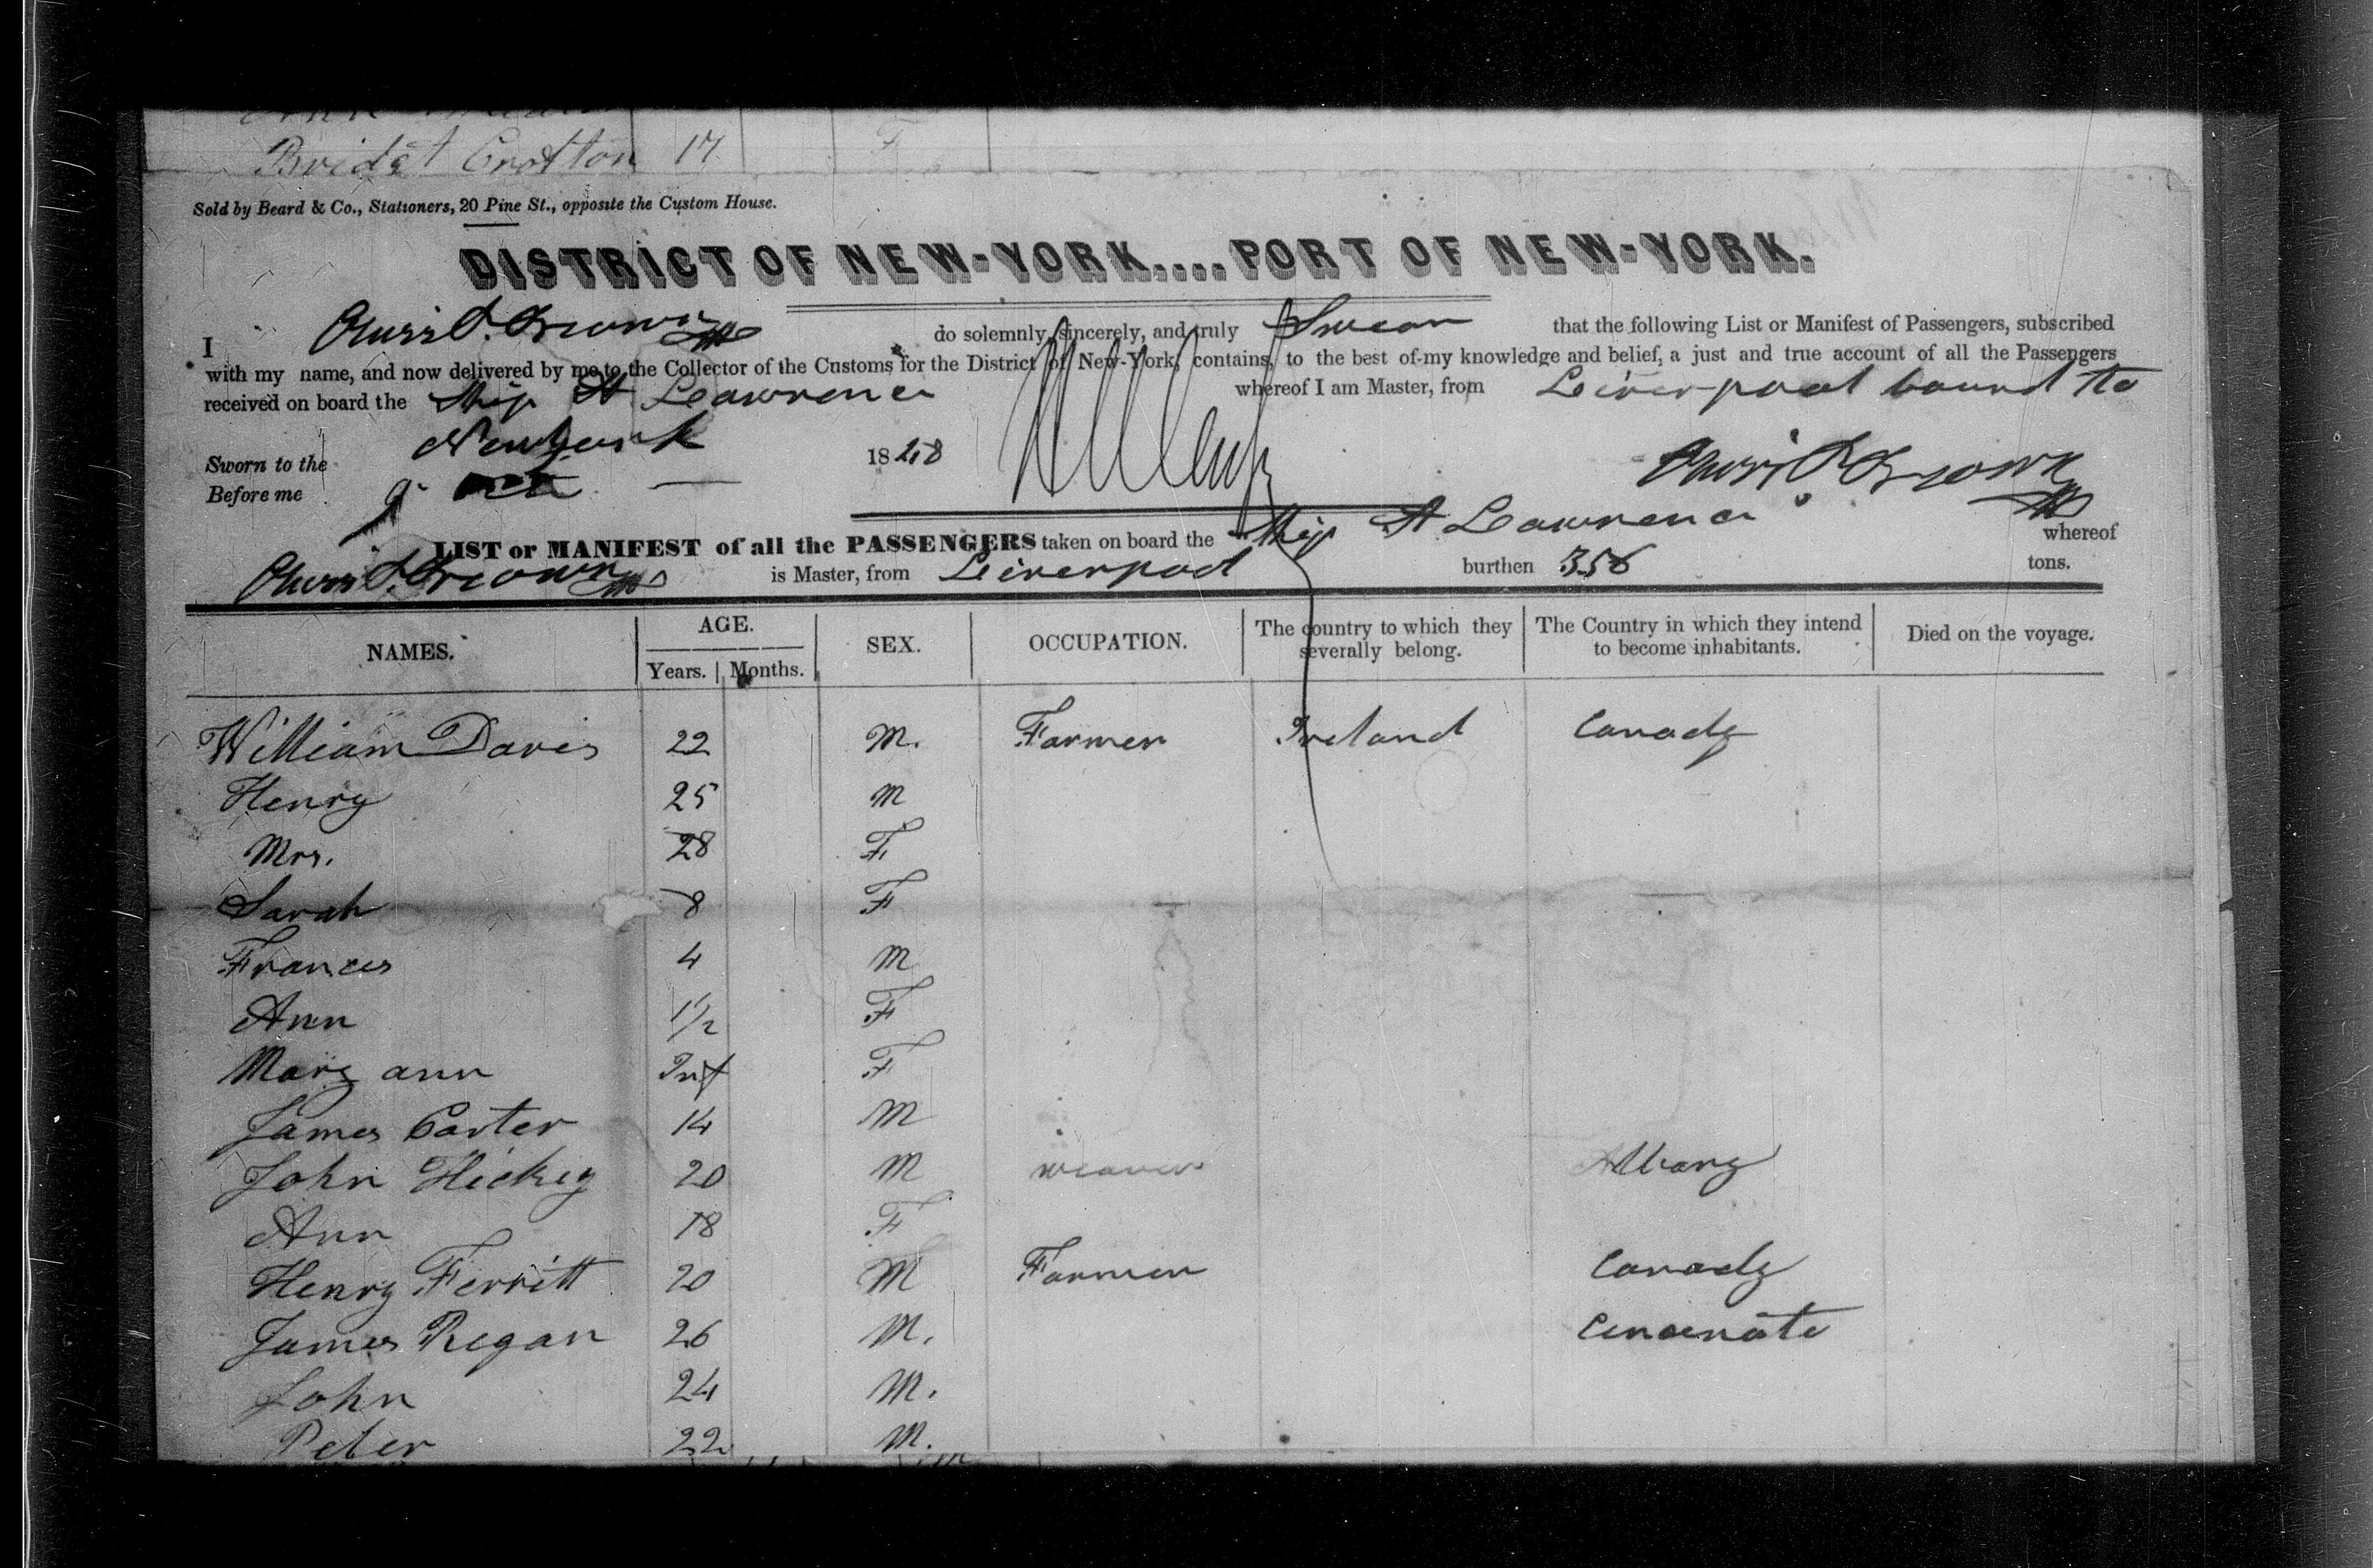 Bridgt Crotton 17 F
Sold by Beard & Co., Stationers, 20 Pine St., opposite the Custom House.
DISTRICT OF NEW-YORK....PORT OF NEW-YORK.
I do solemnly, sincerely, and truly Swear that the following List or Manifest of Passengers, subscribed
with my name, and now delivered by me to the Collector of the Customs for the District of New-York, contains, to the best of my knowledge and belief, a just and true account of all the Passengers
received on board the Ship St Lawrence whereof I am Master, from Liverpool bound to
Newyork
Sworn to the 1828
Before me
LIST or MANIFEST of all the PASSENGERS taken on board the Ship St Lawrence whereof
is Master, from Liverpool burthen 356 tons.
NAMES. AGE. SEX. OCCUPATION. The country to which they severally belong. The Country in which they intend to become inhabitants. Died on the voyage.
Years. Months.
William Davis 22 M. Farmer Ireland Canady
Henry 25 M
Mrs. 28 F
Sarah 8 F
Frances 4 M
Ann 1½ F
Mary ann Inf F
James Carter 14 M
John Hickey 20 M weaver Albany
Ann 18 F
Henry Ferritt 20 M Farmer Canady
James Regan 26 M. Cincinate
John 24 M.
Peter 22 M.